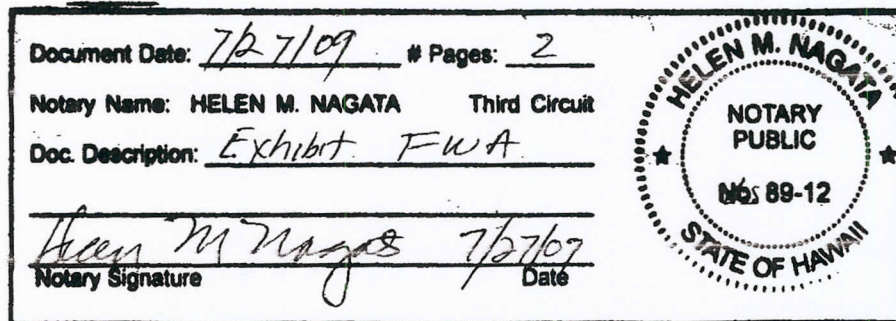 Document Date: 7/27/09 # Pages: 2
Notary Name: HELEN M. NAGATA Third Circuit
Doc. Description: Exhibit FWA
Helen M Nagata 7/27/09
Notary Signature Date
HELEN M. NAGATA
NOTARY
PUBLIC
89-12
STATE OF HAWAII